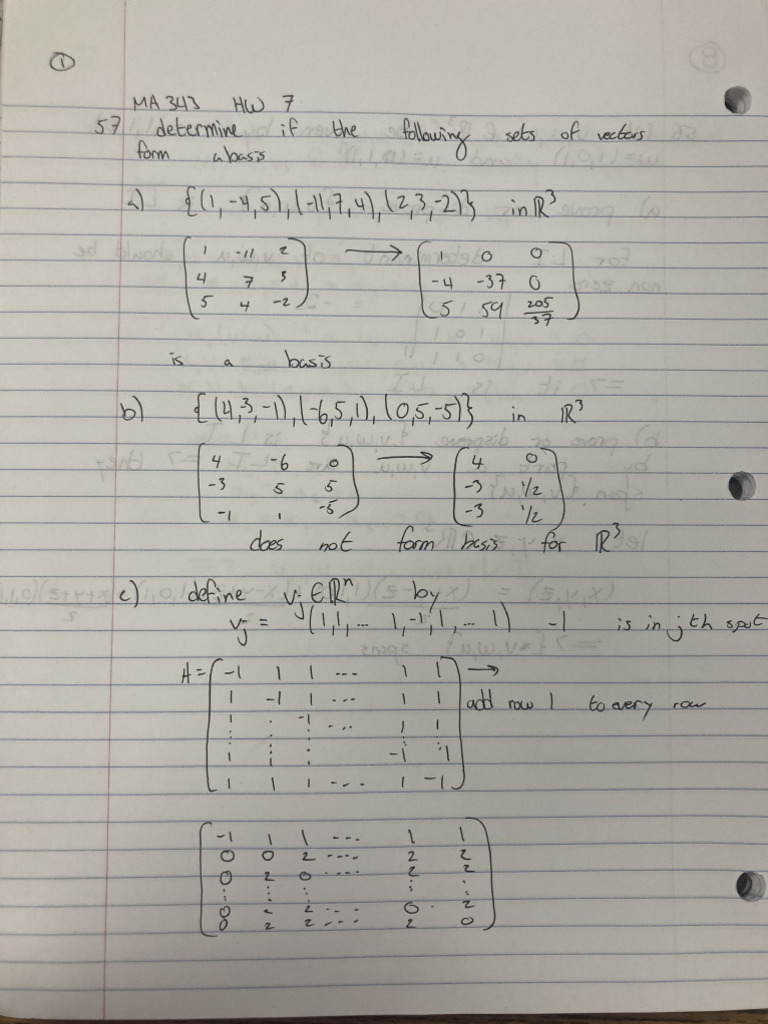 ①
MA 343 HW 7
57 determine if the following sets of vectors
form a basis
a) {(1,-4,5),(-11,7,4),(2,3,-2)} in ℝ³
1 -11 2 → 1 0 0
4 7 3 -4 -37 0
5 4 -2 5 59 205/37
is a basis
b) {(4,3,-1),(-6,5,1),(0,5,-5)} in ℝ³
4 -6 0 → 4 0
-3 5 5 -3 1/2
-1 1 -5 -3 1/2
does not form basis for ℝ³
c) define vj ∈ ℝⁿ by
vj = (1,1,... 1,-1,1,... 1) -1 is in jth spot
A = -1 1 1 ... 1 1 →
1 -1 1 ... 1 1 add row 1 to every row
1 . -1 ... 1 1
⋮ ⋮ ⋮ ⋮ ⋮
1 1 : -1 1
1 1 1 ... 1 -1
-1 1 1 ... 1 1
0 0 2 ... 2 2
0 2 0 ... 2 2
⋮ ⋮ ⋮ ⋮ ⋮
0 2 2 ... 0 2
0 2 2 ... 2 0